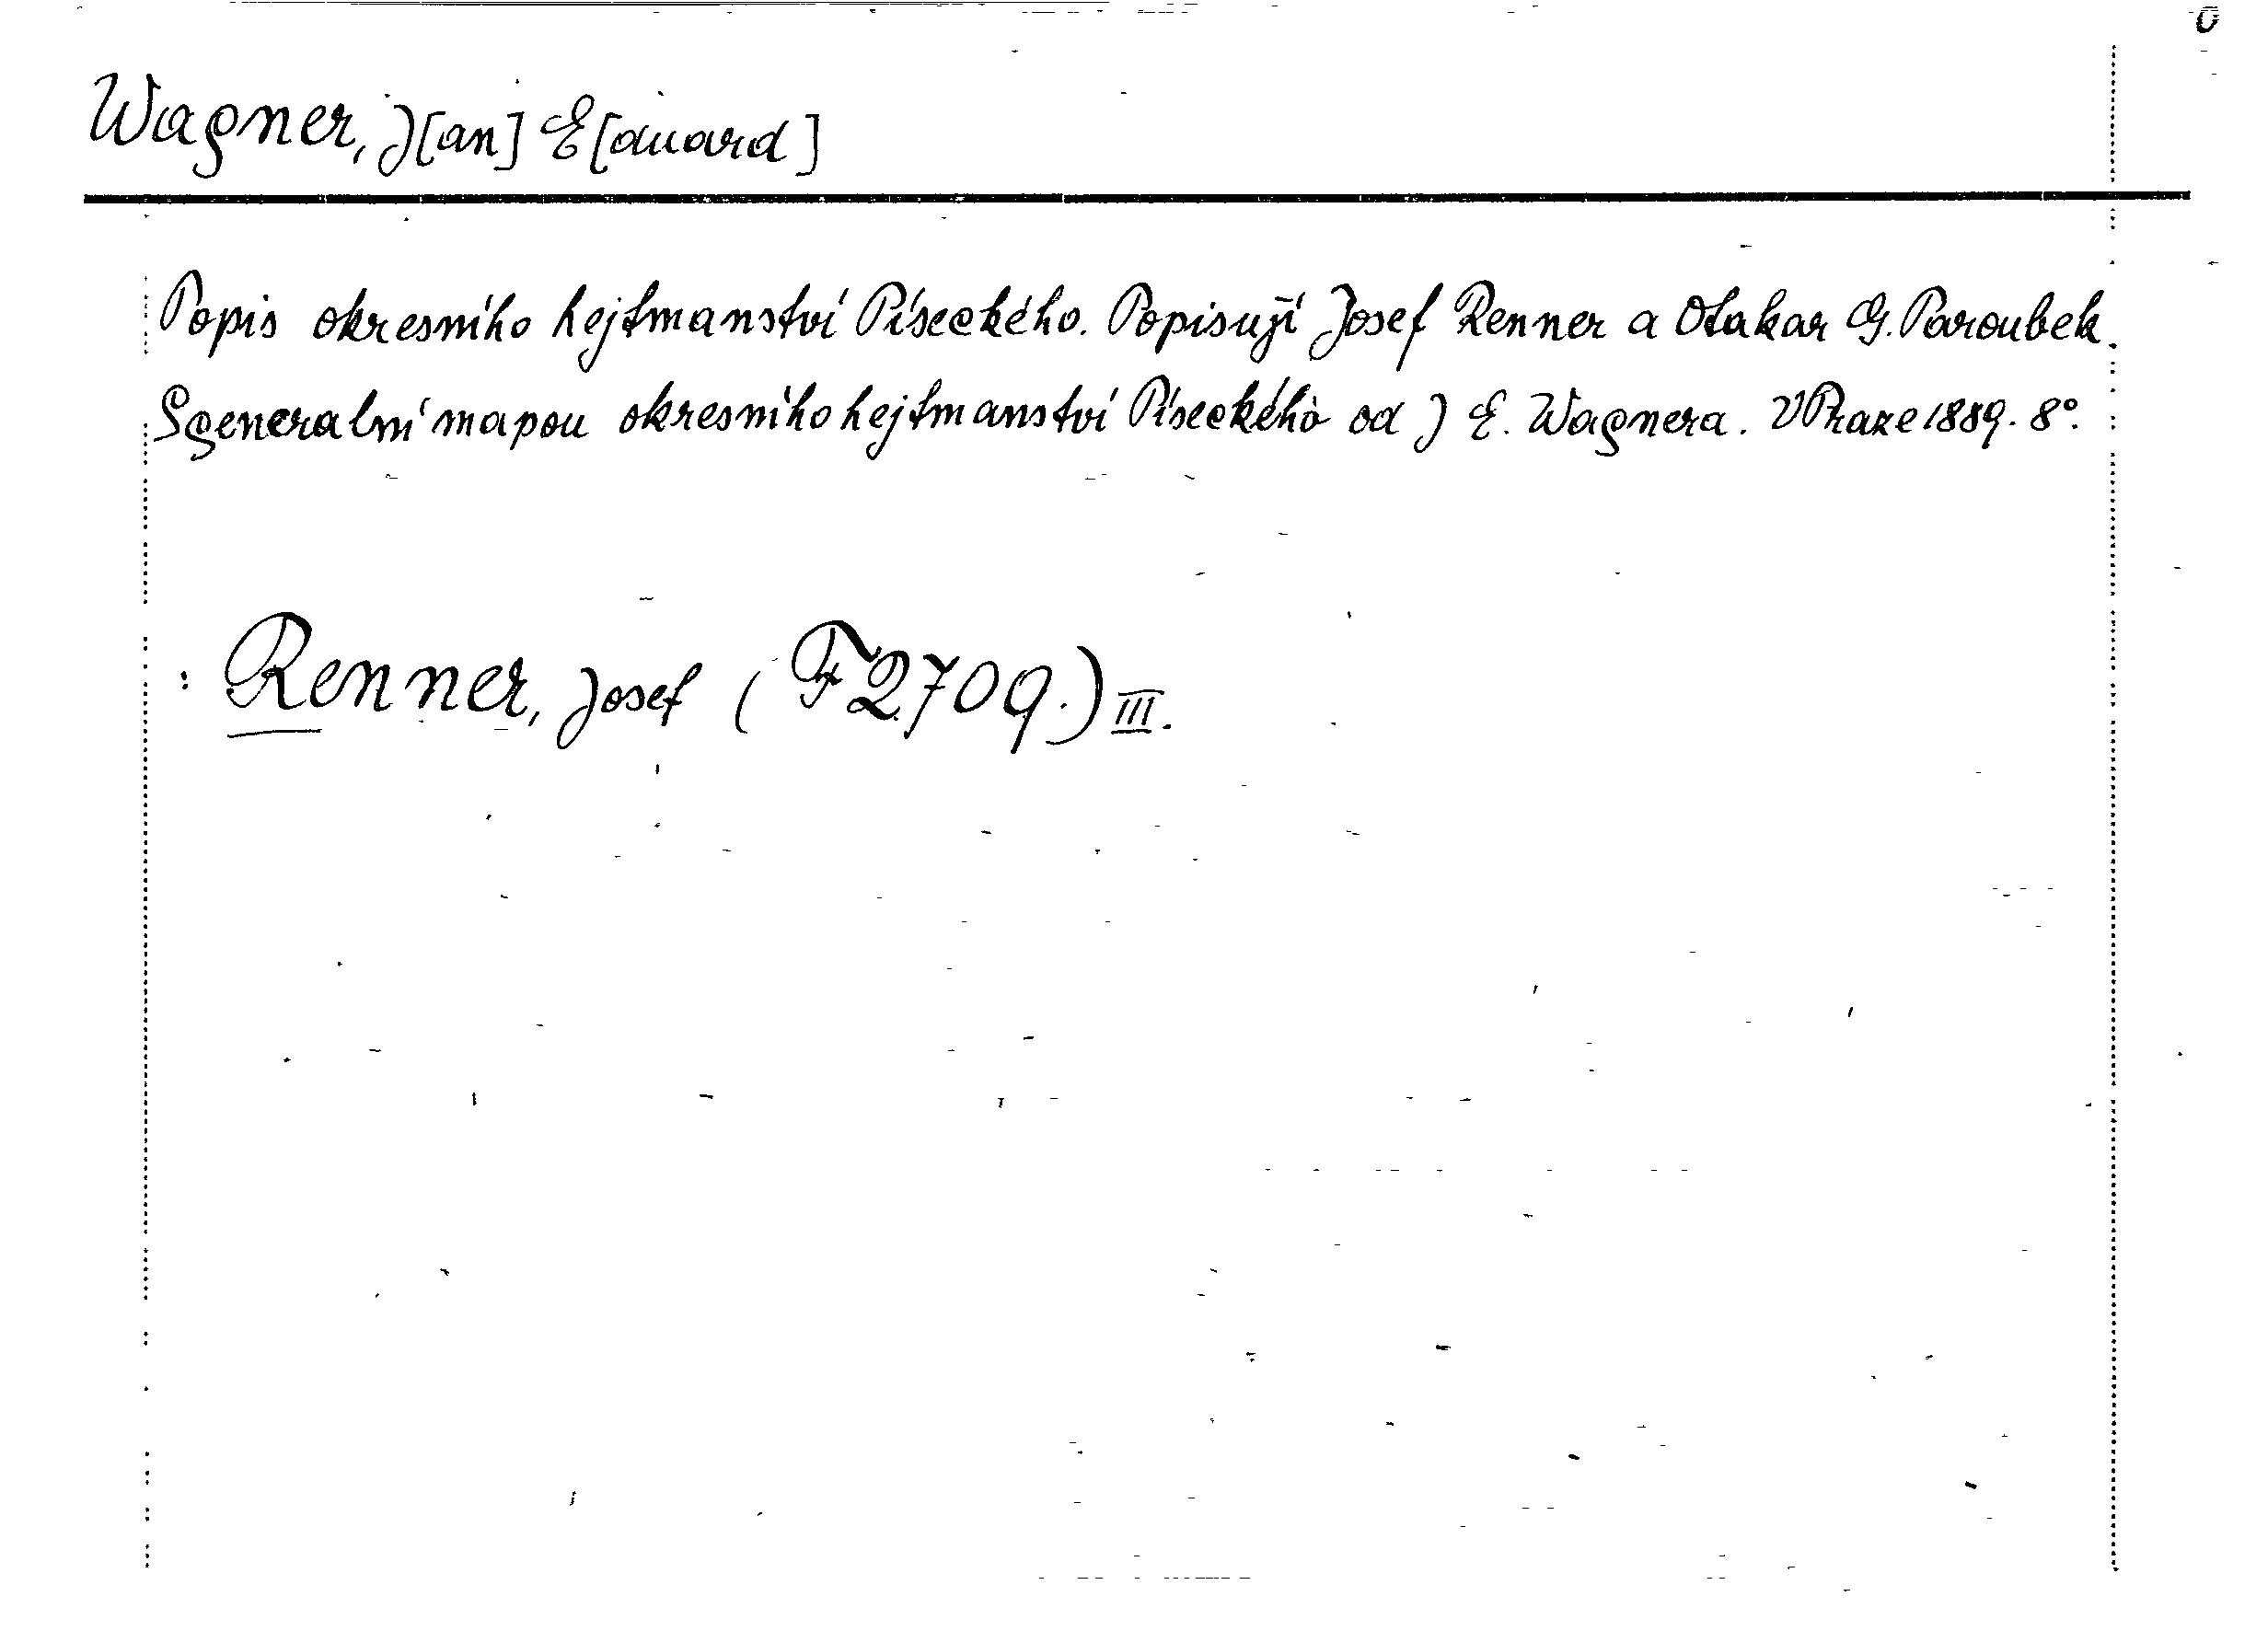 Wagner, J[an] E[duard]
Popis okresního hejtmanství Píseckého. Popisují Josef Renner a Otakar G. Paroubek.
S generalní mapou okresního hejtmanství Píseckého od J E. Wagnera. V Praze 1889. 8°.
: Renner, Josef (F 2709.) III.